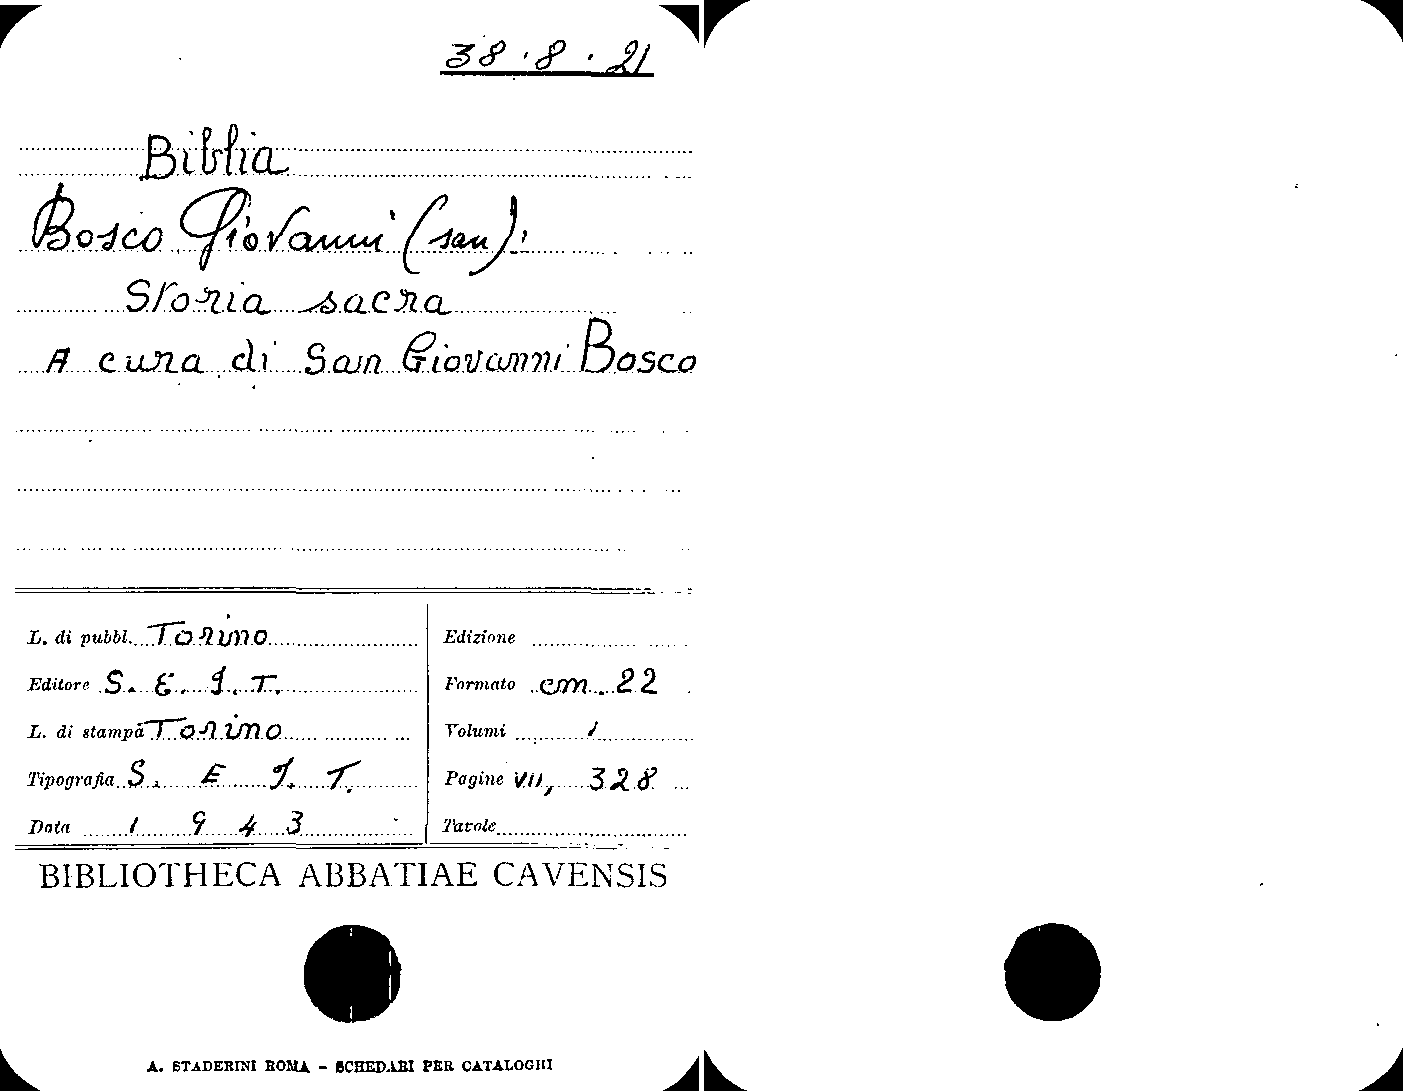 38.8.21
Biblia
Bosco Giovanni (san):
Storia sacra
A cura di San Giovanni Bosco
L. di pubbl. Torino
Editore S. E. I. T.
L. di stampa Torino
Tipografia S. E I. T.
Data 1943
Edizione
Formato cm. 22
Volumi 1
Pagine VII, 328
Tavole
BIBLIOTHECA ABBATIAE CAVENSIS
A. STADERINI ROMA - SCHEDARI PER CATALOGHI